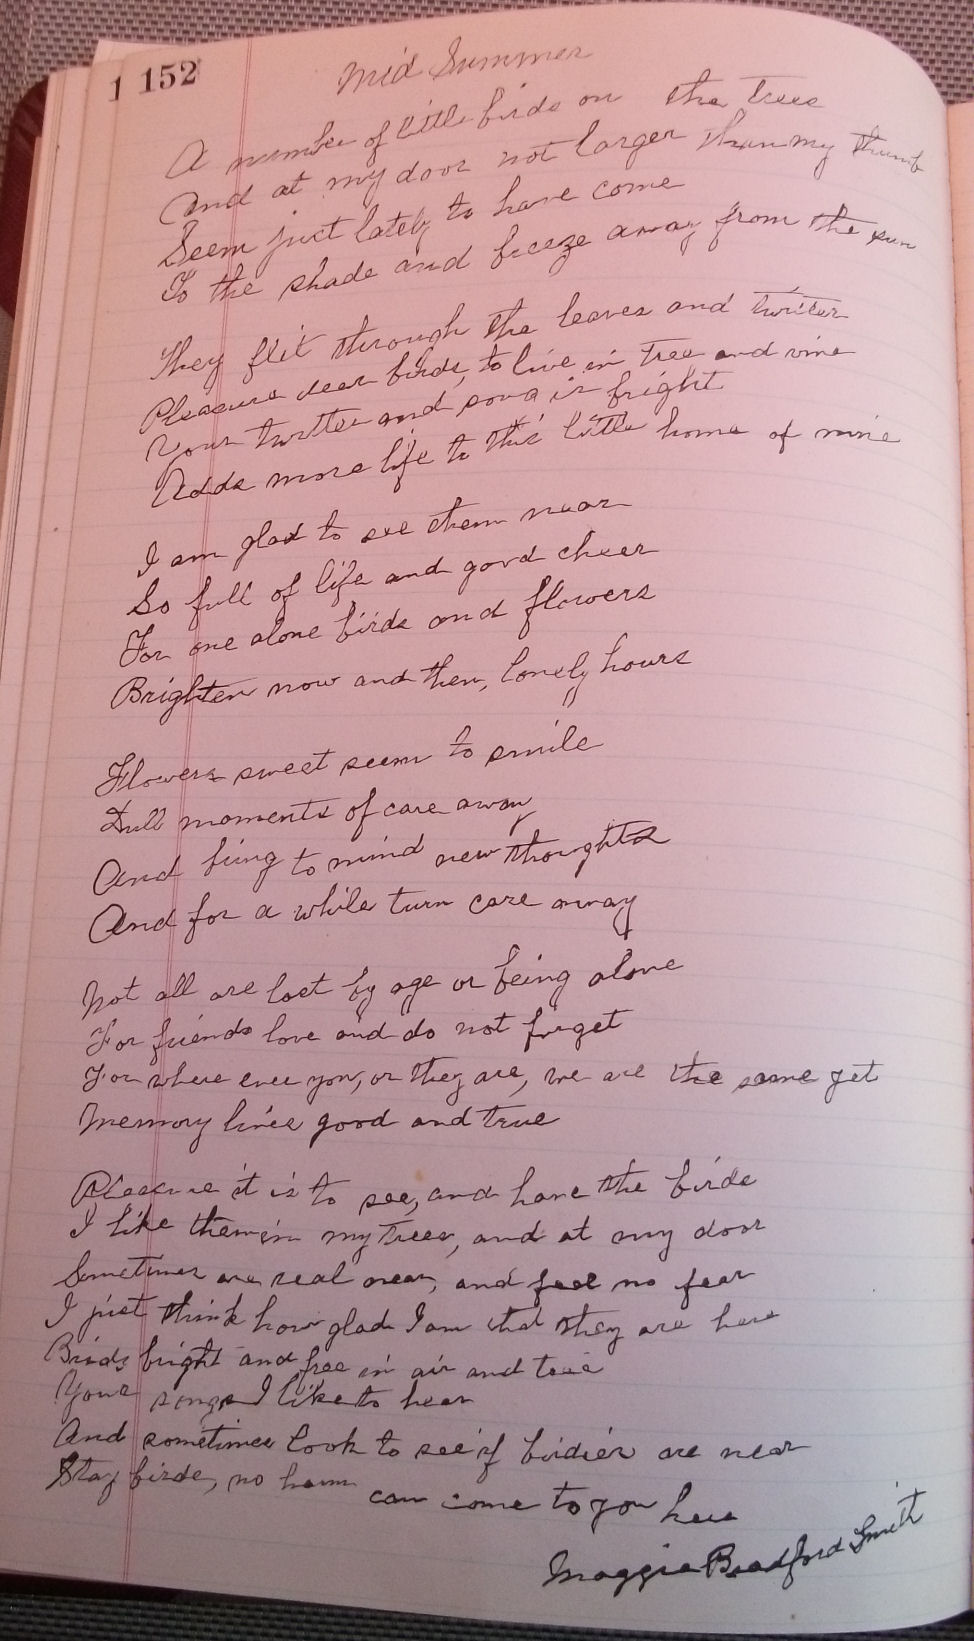 1 152
Mid Summer
A number of little birds on the trees
And at my door not larger than my thumb
Seem just lately to have come
To the shade and breeze away from the sun
They flit through the leaves and twitter
Pleasure dear birds, to live in tree and vine
Your twitter and song is bright
Adds more life to this little home of mine
I am glad to see them near
So full of life and good cheer
For one alone birds and flowers
Brighten now and then, lonely hours
Flowers sweet seem to smile
Dull moments of care away
And bring to mind new thoughts
And for a while turn care away
Not all are lost by age or being alone
For friends love and do not forget
For where ever you, or they are, we are the same yet
Memory lives good and true
Pleasure it is to see, and have the birds
I like them in my trees, and at my door
Sometimes are real near, and feel no fear
I just think how glad I am that they are here
Birds bright and free in air and tree
Your songs I like to hear
And sometimes look to see if birdies are near
Stay birds, no harm can come to you here
Maggie Bradford Smith